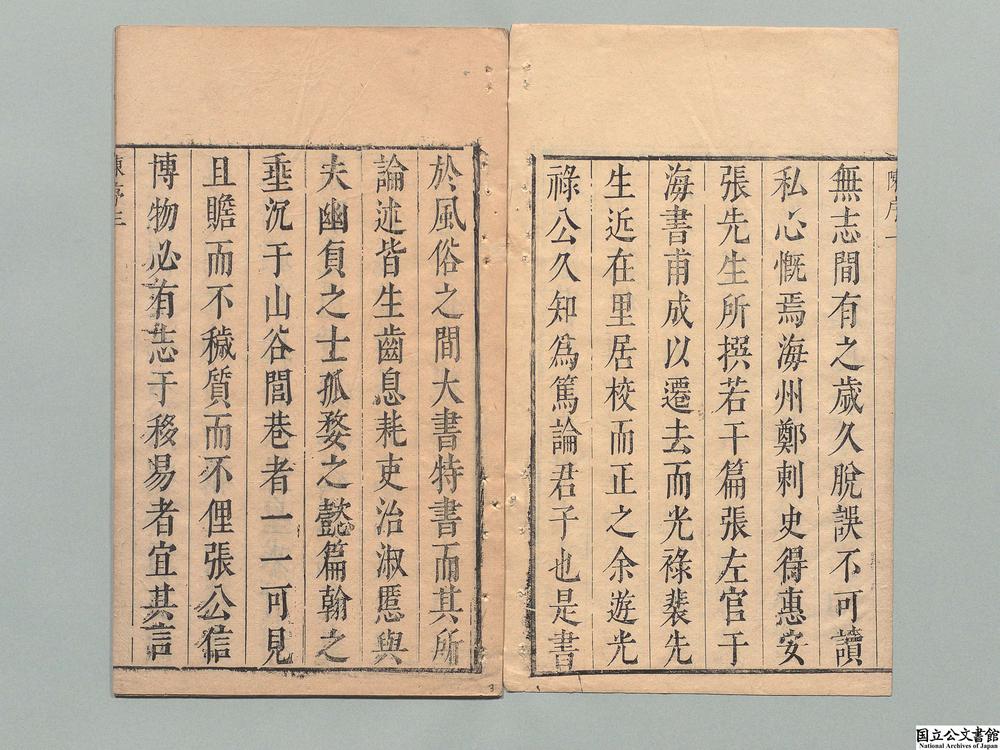 無志間有之歲久脫誤不可讀
私心慨焉海州鄭刺史得惠安
張先生所撰若干篇張左官于
海書甫成以遷去而光祿裴先
生近在里居校而正之余遊光
祿公久知爲篤論君子也是書
於風俗之間大書特書而其所
論述皆生齒息耗吏治淑慝與
夫幽貞之士孤婺之懿篇翰之
垂沉于山谷閭巷者一一可見
且贍而不穢質而不俚張公信
博物必有志于移易者宜其言
国立公文書館
National Archives of Japan